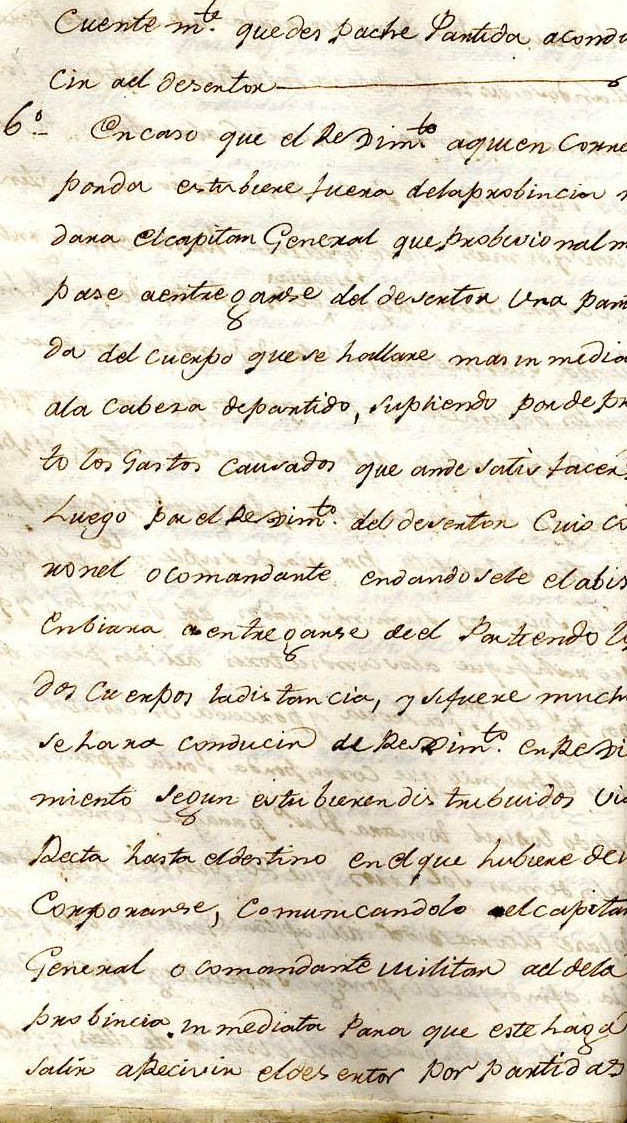 Cuente m.te que des pache Partida acondu
cin ael desentor
6.o En caso que el ReXim.to aquien Corres
ponda estubiere fuera delaprobincia
dara elcapitan General que probicionalm
pase aentregarse del desertor una parti
da del cuerpo que se hallare mas in media
ala Cabeza departido, supliendo por de pr
to los Gastos causados que ande satis facer
Luego por el ReXim.to del desertor Cuio co
ronel o comandante endandosele elabis
Enbiara a entregarse deel Partiendo lo
dos Cuerpos ladistancia, y sifuere much
se hara conducir de ReXim.to en ReXi
miento segun estubieren dis tribuidos via
Recta hasta eldestino en el que hubiere de in
Corporarse, Comunicandolo el capitan
General o comandante Militar ael dela
probincia in mediata Para que este haga
salir aRecivir eldesertor por partidas